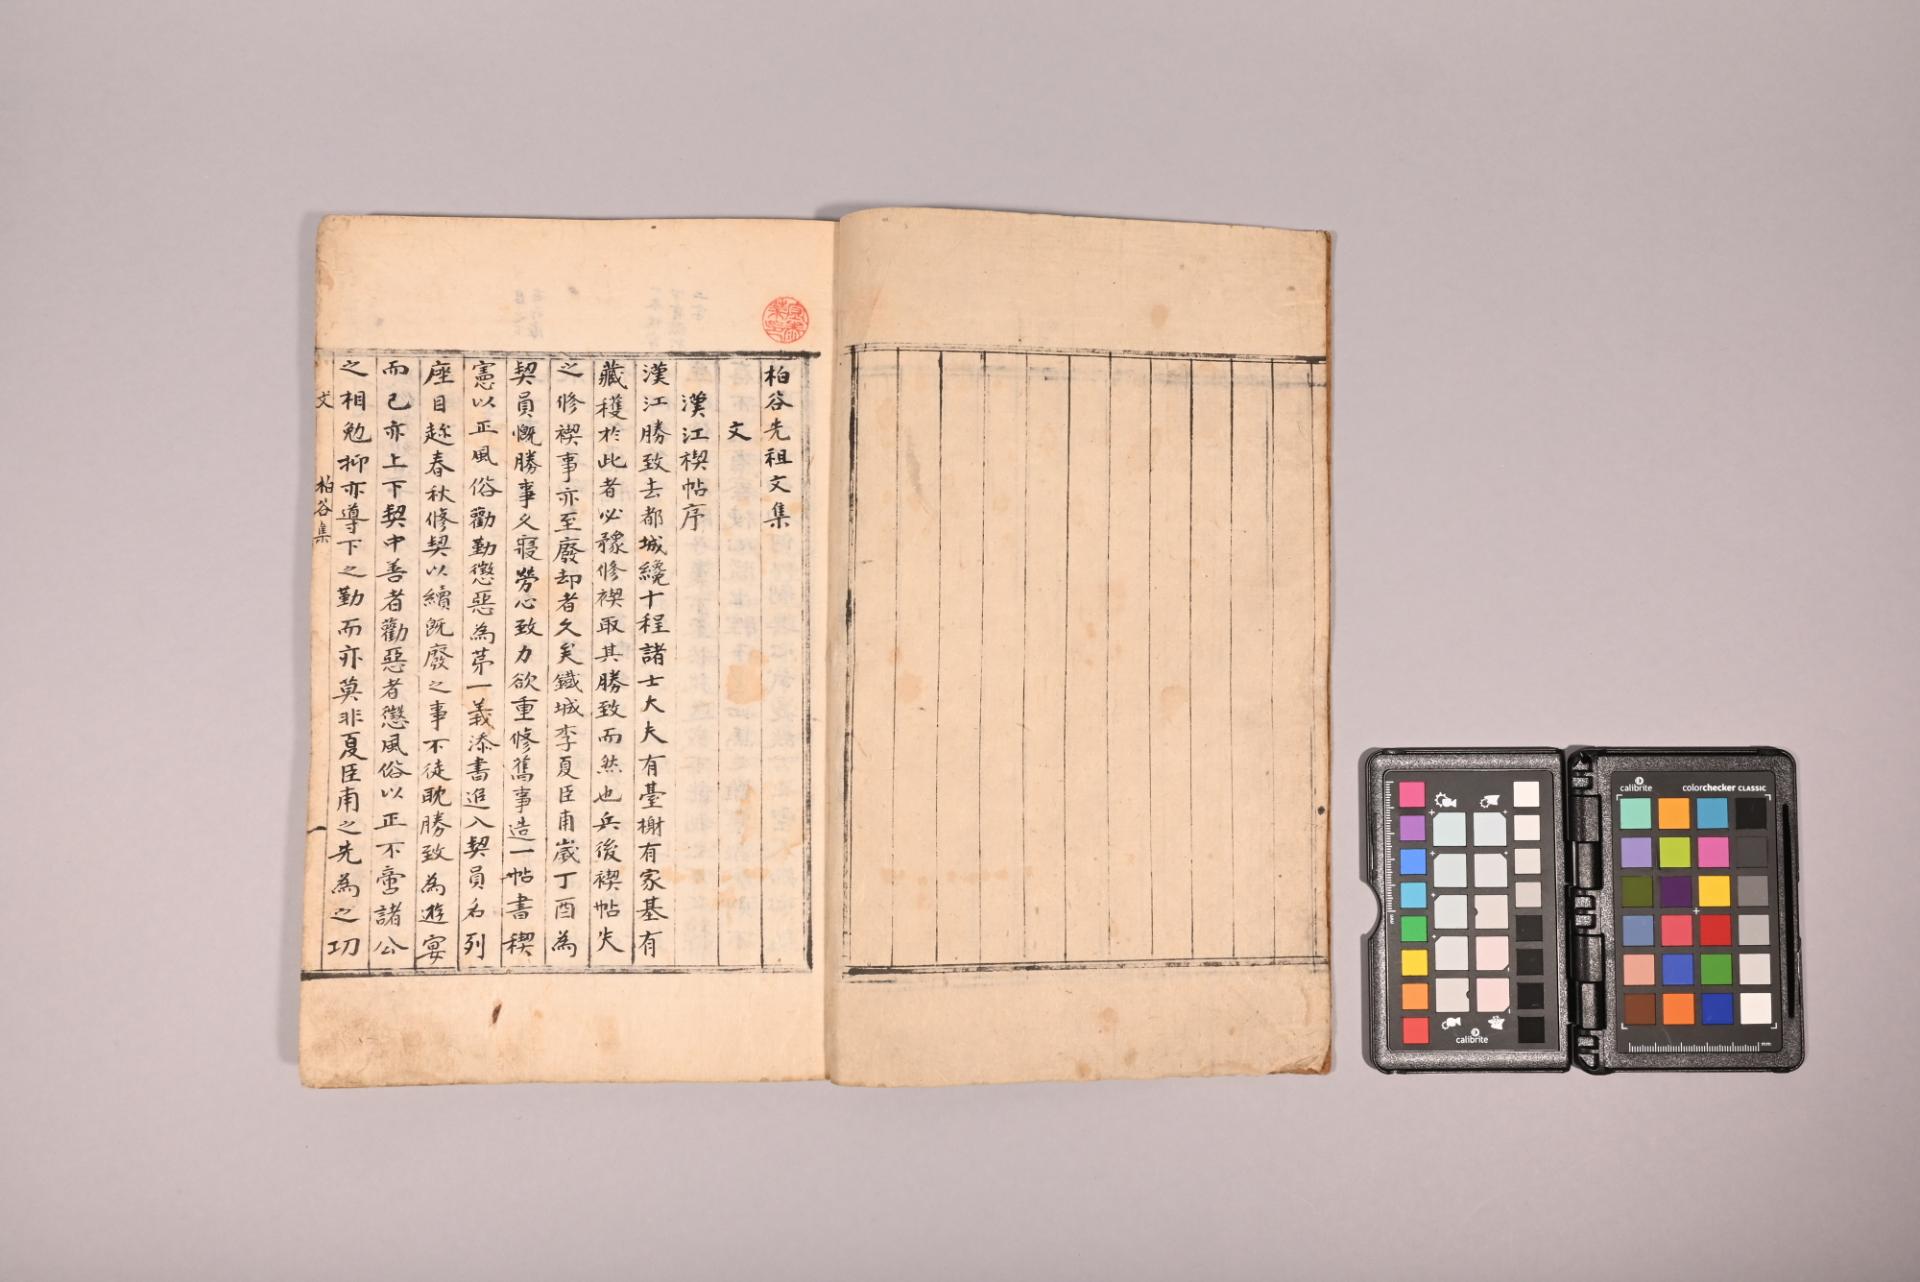 柏谷先祖文集
文
漢江禊帖序
漢江勝致去都城纔十程諸士大夫有臺榭有家基有
藏穫於此者必豫修禊取其勝致而然也兵後禊帖失
之修禊事亦至廢却者久矣鐵城李夏臣甫歲丁酉為
契員慨勝事久寢勞心致力欲重修舊事造一帖書稧
憲以正風俗勸勤懲惡為苐一義添書追入契員名列
座目趂春秋修契以續旣廢之事不徒耽勝致為遊宴
而已亦上下契中善者勸惡者懲風俗以正不啻諸公
之相勉抑亦導下之勤而亦莫非夏臣甫之先為之功
文 柏谷集 一
calibrite
colorchecker CLASSIC
calibrite